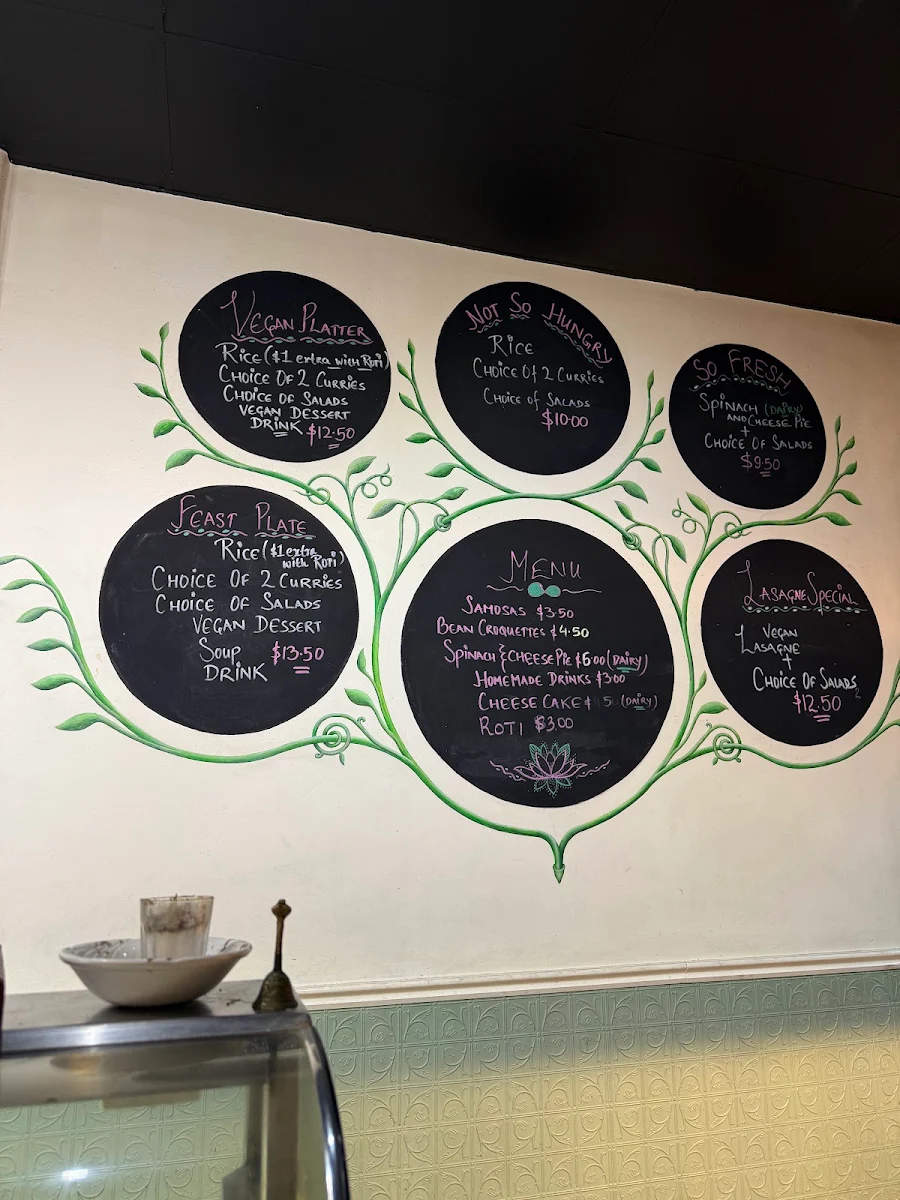 Vegan Platter
Rice ($1 extra with Roti)
Choice Of 2 Curries
Choice Of Salads
Vegan Dessert
Drink $12.50
Not So Hungry
Rice
Choice Of 2 Curries
Choice of Salads
$10.00
So Fresh
Spinach (Dairy)
and Cheese Pie
+
Choice Of Salads
$9.50
Feast Plate
Rice ($1 extra
with Roti)
Choice Of 2 Curries
Choice Of Salads
Vegan Dessert
Soup $13.50
Drink
Menu
Samosas $3.50
Bean Croquettes $4.50
Spinach & Cheese Pie $6.00 (Dairy)
Homemade Drinks $3.00
Cheese Cake $ (Dairy)
Roti $3.00
Lasagne Special
Vegan
Lasagne
+
Choice Of Salads
$12.50